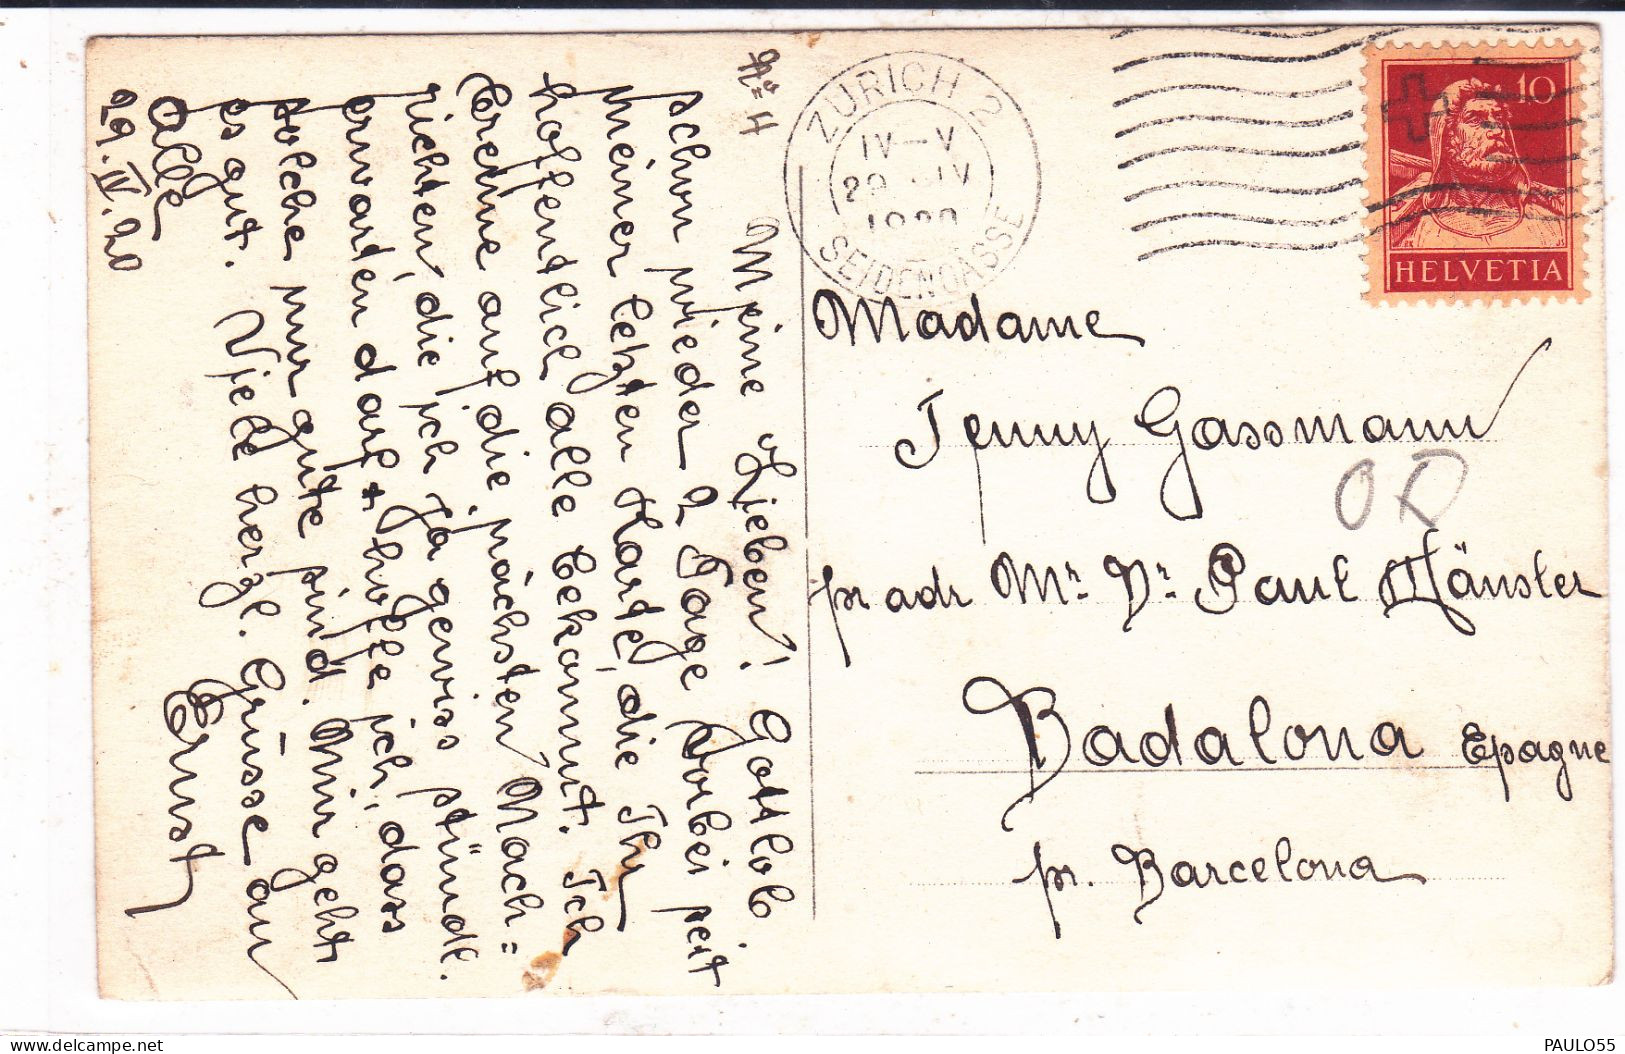 No 4
Meine Lieben! Gottlob
schon wieder 2 Tage vorbei seit
meiner letzten Karte, die Ihr
hoffentlich alle bekommt. Ich
brenne auf die nächsten Nach=
richten, die ich ja gewiss stündl.
erwarten darf + hoffe ich, dass
solche nur gute sind. Mir geht
es gut. Viele herzl. Grüsse an
Alle
Ernst
29.IV.20
ZÜRICH 2
IV—V
29 IV
1920
SEIDENGASSE
10
HELVETIA
Madame
Jenny Gassmann
pr adr Mr. Dr. Paul Hänsler
Badalona Epagne
pr. Barcelona
PAULO55